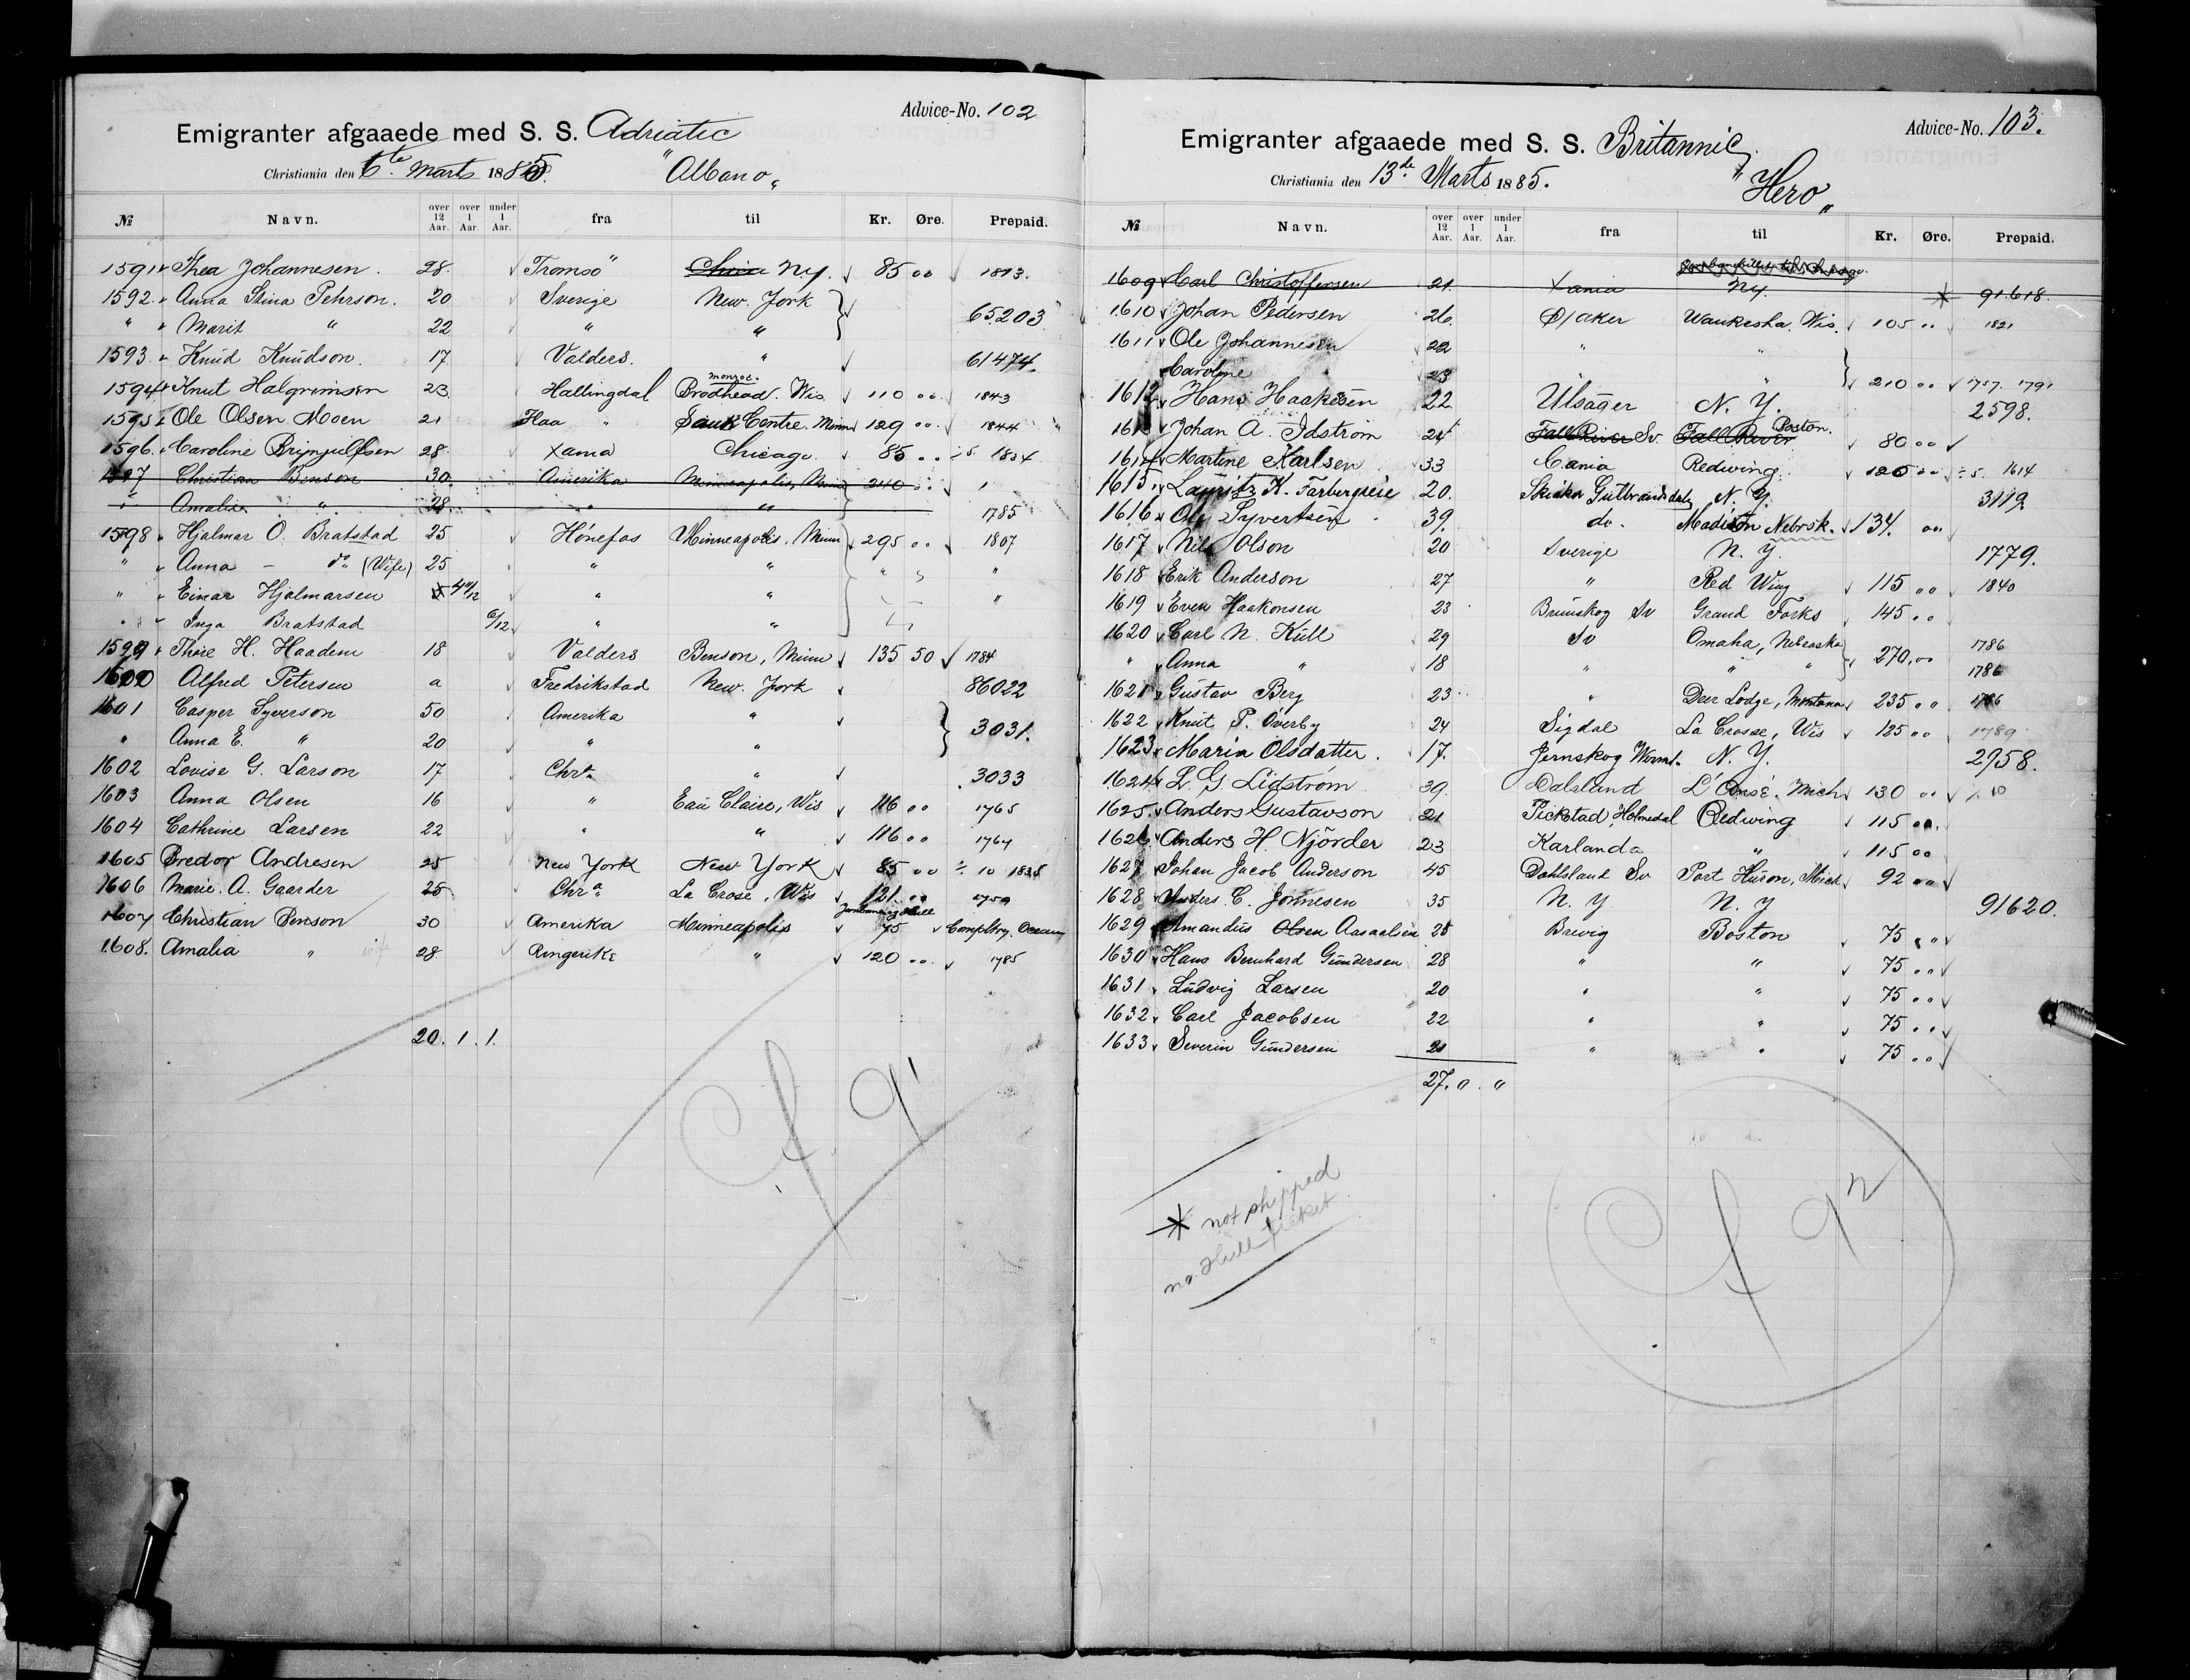 Advice-No. 102
Emigranter afgaaede med S. S. Adriatic
Christiania den 6te Marts 1885. "Albano"
№ Navn. over 12 Aar. over 1 Aar. under 1 Aar. fra til Kr. Øre. Prepaid.
1591 Thea Johannesen. 28. Tromsö N.Y. 85 00 1813.
1592. Anna Stina Pehrson. 20 Sverige New. York
" " Marit " 22 " " 65203
1593. Knud Knudson. 17 Valders. " 61474.
1594 Knut Halgrimsen 23. Hallingdal Brodhead. Wis. monroe. 110 00. 1843
1595 Ole Olsen Moen 21 Flaa " Sauk Centre. Minn 129 00. 1844
1596. Caroline Brynjulfsen 28. Xania Chicago. 85 00 ÷ 5. 1834
1597 Christian Benson 30. Amerika Minneapolis, Minn 240 00
" Amalia " 28. " " 1785
1598 Hjalmar O. Bratstad 25 Hönefos Minneapolis. Minn 295 00 1807
" " Anna - do (Wife) 25 " " " "
" " Einar Hjalmarsen 4 11/12 " " "
" " Inga Bratstad 6/12 " "
1599 Thore H. Haadem 18 Valders Benson, Minn 135 50 1784
1600 Alfred Petersen a Fredrikstad New. York 86022
1601 Casper Syverson 50 Amerika "
" Anna E. " 20 " " 3031.
1602 Lovise G. Larson 17 Chra. " 3033
1603 Anna Olsen 16 " Eau Claire, Wis 116 00 1765
1604 Cathrine Larsen 22 " " 116 00 1764
1605 Bredor Andresen 25 New York New York 85 00 ÷ 10 1835
1606 Marie. A. Gaarder 25 Chra. La Crose, Wis 121 00 1759
1607 Christian Benson 30 Amerika Minneapolis 75
1608. Amalia " 28 Ringerike " 120 00. 1785
20. 1. 1.
Cf 91
Advice-No. 103.
Emigranter afgaaede med S. S. Britannic,
Christiania den 13de Marts 1885. "Hero"
№ Navn. over 12 Aar. over 1 Aar. under 1 Aar. fra til Kr. Øre. Prepaid.
1609 Carl Christoffersen 21 Xania N.Y. * 91618.
1610 Johan Pedersen 26. Ø/aker Waukesha. Wis. 105 " 1821
1611 Ole Johannesen 22 " "
Caroline " 23 " 210 00 1757. 1791
1612 Hans Haakesen 22 Ulsager N. Y. 2598.
1613 Johan A. Idström 24 Fall River Sv Fall River Boston. 80 00
1614 Martine Karlsen 33 Cania Redwing 125 00 ÷ 5. 1614
1615. Lauritz K. Farbergseie 20. Skiaker Gutbrandsdal, N. Y. 3119
1616 Ole Syvertsen 39. do. Madison Nebrsk. 134. 00
1617 Nils Olson 20 Sverige N. Y. 1779.
1618 Erik Anderson 27 " Red Wing 115 00 1840
1619 Even Haakonsen 23 Brunskog Sv Grand Forks 145 00
1620 Carl N. Küll 29 Sv Omaha, Nebraska 1786
" Anna " 18 " " " 270,00 1786
1621 Gustav Berg 23 " Deer Lodge, Montana 235 00 1786
1622 Knut P. Överby 24 Sigdal La Crosse, Wis 125 00 1789
1623 Maria Olsdatter. 17. Jernskog Werml. N. Y. 2958.
1624 L. G. Lidström 39 Dalsland L'Anse. Mich 130 00 ÷ 10
1625. Anders Gustavson 21 Holmedal Redwing 115 00.
1626 Anders H. Njörder 23 Karlanda " 115 00
1627 Johan Jacob Anderson 45 Dahlsland Sv Port Huron, Mich 92 00
1628 Anders. C. Jonnesen 35 N. Y N. Y 91620.
1629 Amandus Olsen Aasaalsen 25 Brevig Boston 75 ""
1630 Hans Bernhard Gundersen 28 " " 75 00
1631 Ludvig Larsen 20 " " 75 00
1632 Carl Jacobsen 22 " " 75 00
1633 Severin Gundersen 21 " " 75 00
27. 0. "
* not shipped
no. Hull ticket
Cf 92